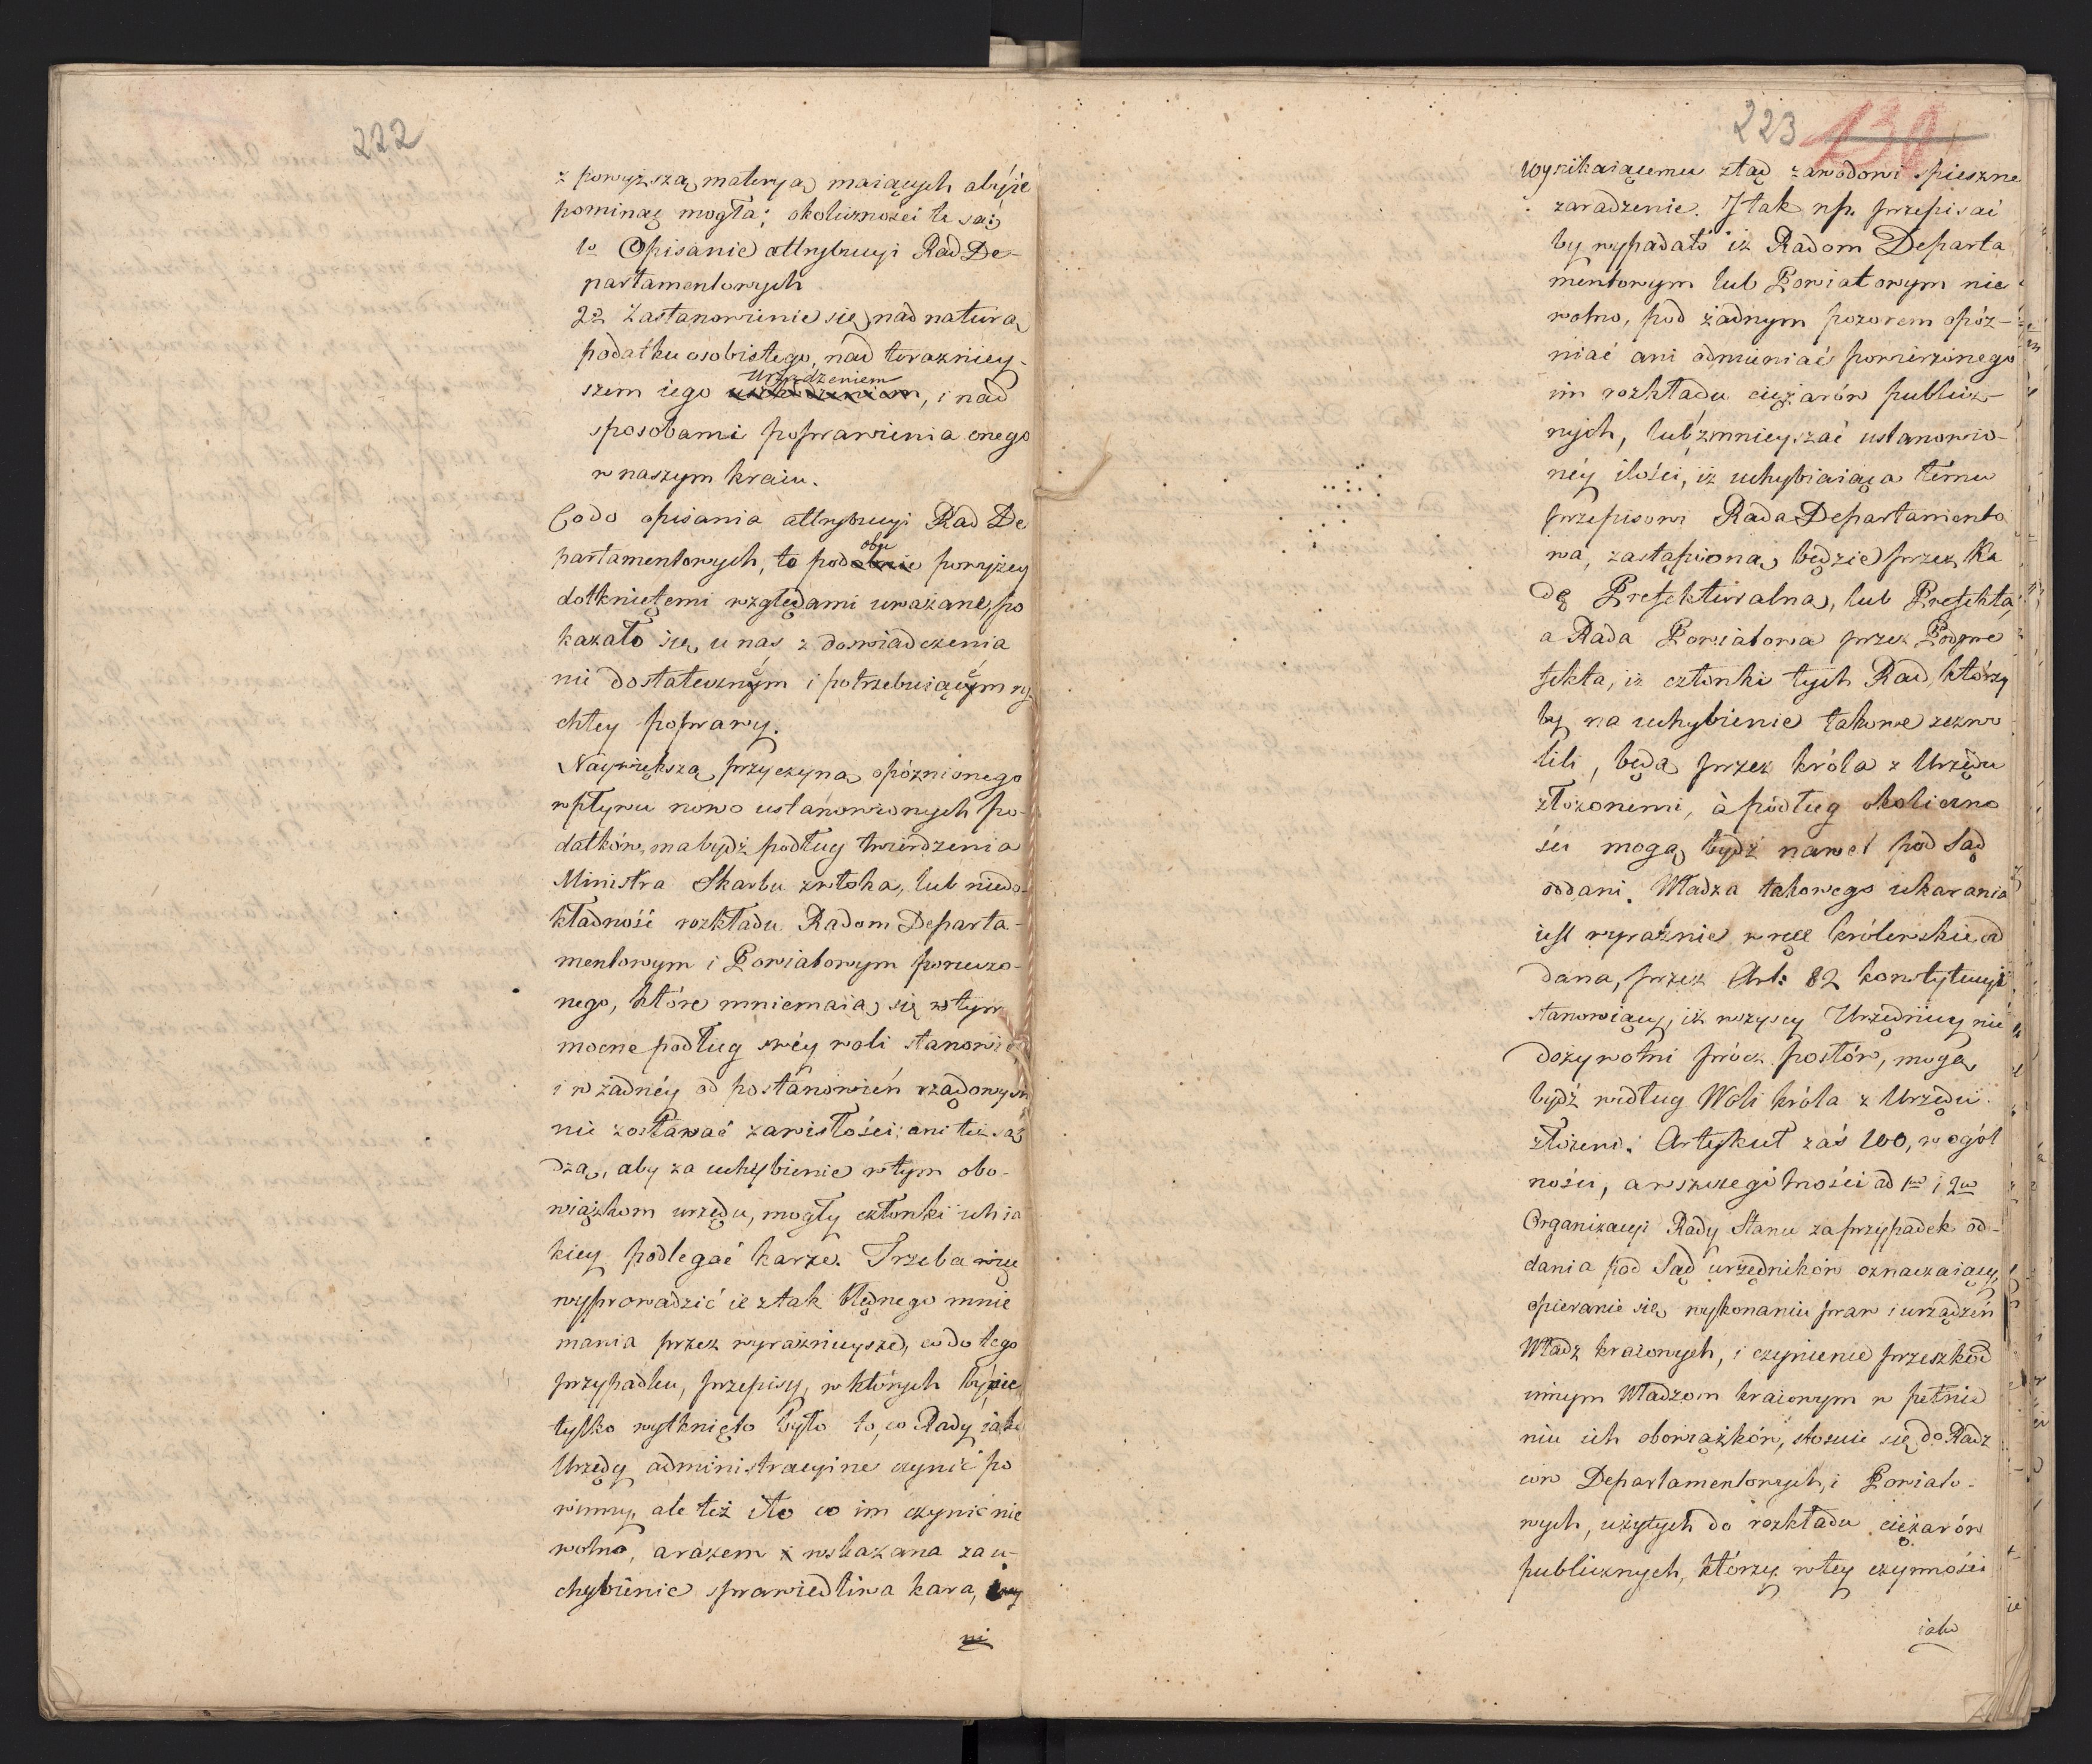 222
z powyższą materyą maiących aby ie
pominąć mogła; okoliczności te są;
1o Opisanie attrybucyi Rad De-
partamentowych
2o Zastanowienie się nad naturą
podatku osobistego, nad teraźniey-
szem iego urządzeniem, i nad
sposobami poprawienia onego
w naszym kraiu.
Co do opisania attrybucyi Rad De
partamentowych, to pod obu powyżey
dotkniętemi względami uważane, po
kazało się, u nas z doświadczenia
nie dostateczném i potrzebuiącém ry
chłey poprawy.
Naywiększą przyczyną opóźnionego
wpływu nowo ustanowionych po-
datków, ma bydź podług twierdzenia
Ministra Skarbu zwłoka, lub niedo-
kładność rozkładu Radom Departa-
mentowym i Powiatowym poruczo-
nego, które mniemaią się w tym
mocne podług swéy woli stanowić
i w żadnéy od postanowień rządowych
nie zostawać zawisłości; ani też są
dzą, aby za uchybienie w tym obo-
wiązkom urzędu, mogły członki ich ia
kiey podlegać karze. Trzeba więc
wyprowadzić ie z tak błędnego mnie
mania przez wyraźnieysze, co do tego
przypadku, przepisy, w których by nie
tylko wytknięto było to, co Rady iako
Urzędy administracyine czynić po
winny, ale też i to co im czynić nie
wolno, a razem i wskazana za u-
chybienie sprawiedliwa kara,
ni
223 130
wynikaiącemu ztąd zawodowi spieszne
zaradzenie. I tak np. przepisać
by wypadało iż Radom Departa
mentowym lub Powiatowym nie
wolno, pod żadnym pozorem opóź-
niać ani odmieniać powierzonego
im rozkładu ciężarów publicz-
nych, lub zmnieyszać ustanowio-
néy ilości, iż uchybiaiąca temu
przepisowi Rada Departamento
wa, zastąpioną będzie przez Ra
dę Prefekturalną, lub Prefekta,
a Rada Powiatowa przez Podpre
fekta, iż członki tych Rad, którzy
by na uchybienie takowe zezwo
lili, będą przez króla z Urzędu
złożonemi, à podług okoliczno
ści mogą bydź nawet pod Sąd
oddani. Władza takowego ukarania
iest wyraźnie w ręce królewskie od
dana, przez Art: 82 konstytucyi
stanowiący, iż wszyscy Urzędnicy nie
dożywotni prócz posłów, mogą
bydź według Woli króla z Urzędu
złożeni. Artykuł zaś 100, w ogól
ności, a w szczególności ad 1m i 2m
Organizacyi Rady Stanu za przypadek od-
dania pod Sąd urzędników oznaczaiący,
opieranie się wykonaniu praw i urządzeń
Władz kraiowych, i czynienie przeszkód
innym Władzom kraiowym w pełnie
niu ich obowiązków, stosuie się do Radz
ców Departamentowych, i Powiato-
wych, użytych do rozkładu ciężarów
publicznych, którzy w tey czynności
iako